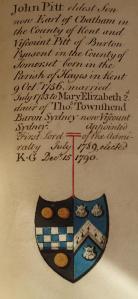 John Pitt eldest Son
now Earl of Chatham in
the County of Kent and
Viscount Pitt of Burton
Pynsent in the County of
Somerset born in the
Parish of Hayes in Kent
9 Oct.r 1756. married
July 1783 to Mary Elizabeth 2.d
daur of Tho.s Townshend
Baron Sydney now Viscount
Sydney. Appointed
First Lord of the Admi=
ralty July 1789. elected
K:G Dec.r 15 1790.